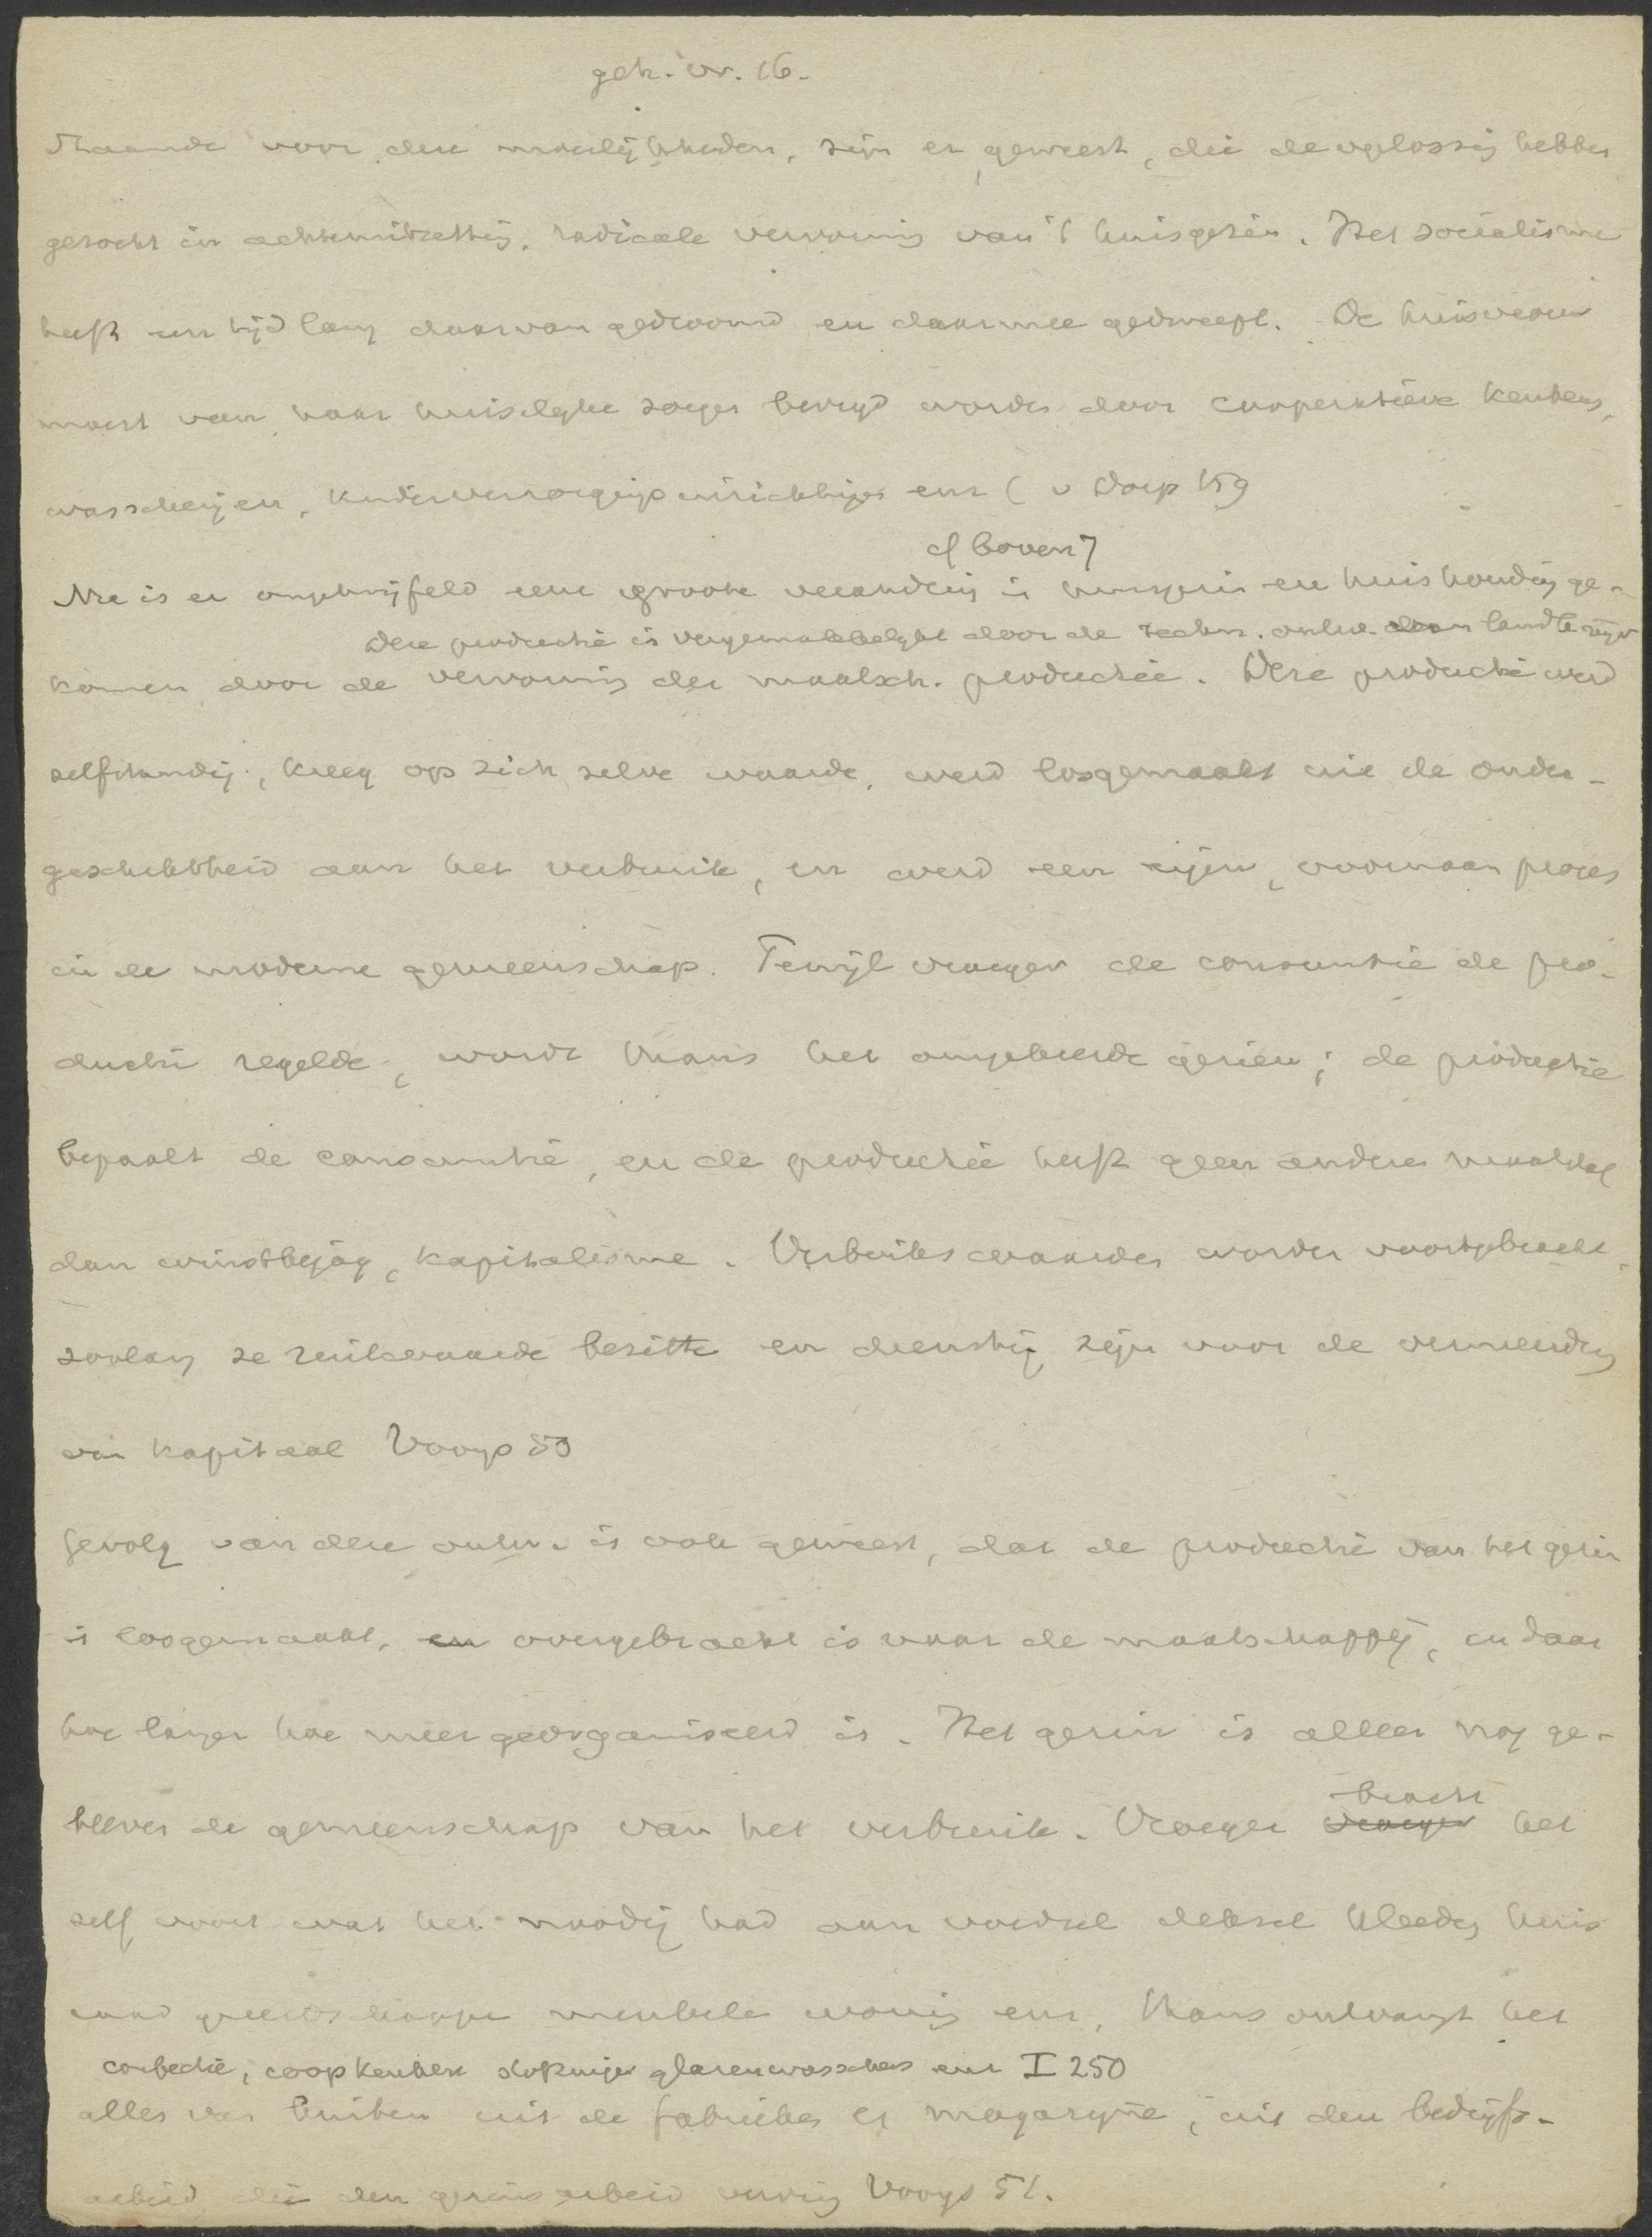 geh. vr. 16.
Staande voor deze moeilijkheden, zijn er geweest, die de oplossing hebben
gezocht in radicale vervorming van 't huisgezin. Het socialisme
heeft een tijd lang daarvan gedroomd en daarmee gedweept. De huisvrouw
moest van haar huiselyke zorgen bevryd worden door cooperatieve keukens,
wasscherijen, kinderverzorgingsinrichtingen enz ( v Dorp 159
cf boven 7
Nu is er ongetwijfeld eene groote verandering in huisgezin en huishouding ge-
Deze productie is vergemakkelykt door de techn. ontw.
komen door de vervorming der maatsch. productie. Deze productie werd
zelfstandig, kreeg op zich zelve waarde, werd losgemaakt uit de onder-
geschiktheid aan het verbruik, en werd een eigen, voornaam proces
in de moderne gemeenschap. Terwijl vroeger de consumtie de pro-
ductie regelde, wordt thans het omgekeerde gezien; de productie
bepaalt de consumtie, en de productie heeft geen andere maatstaf
dan winstbejag, kapitalisme. Verbruikswaarden worden voortgebracht,
zoolang ze ruilwaarde bezitten en dienstig zijn voor de vermeerdering
van kapitaal Vooys 50
Gevolg van deze ontw. is ook geweest, dat de productie van het gezin
is losgemaakt, en overgebracht is naar de maatschappij, en daar
hoe langer hoe meer georganiseerd is. Het gezin is alleen nog ge-
bleven de gemeenschap van het verbruik. Vroeger vroeger het
bracht
zelf voort wat het noodig had aan voedsel deksel kleeding huis
raad gereedschappen meubelen woning enz, thans ontvangt het
confectie, coop keuken stofzuiger glazenwasschers enz I 250
alles van buiten uit de fabrieken en magazynen, uit den bedrijfs-
arbeid, die den gezinsarbeid verving Vooys 51.